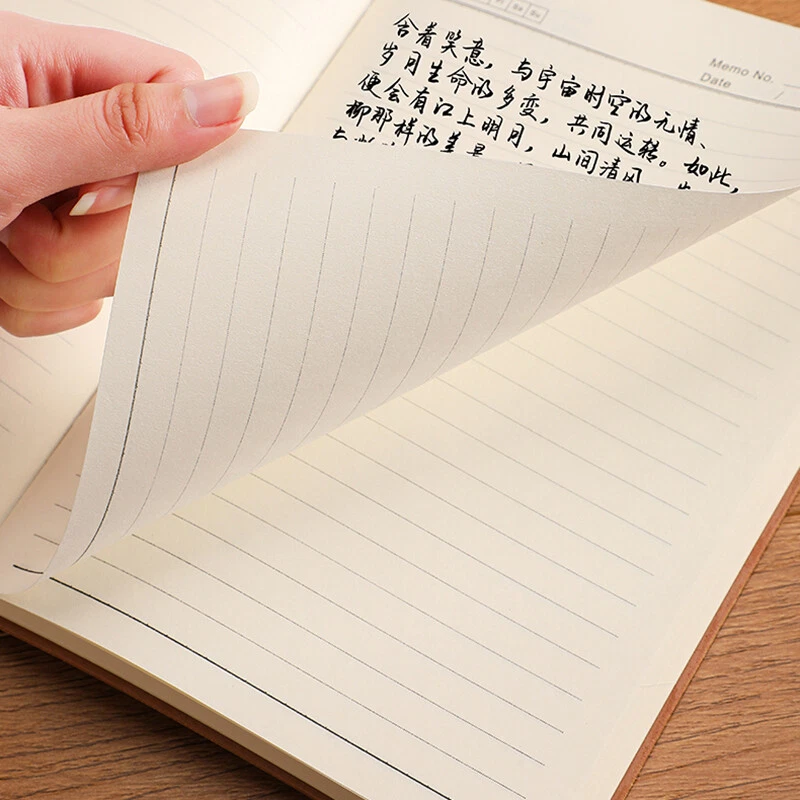 Sa Su
Memo No.
Date /
含着笑意，与宇宙时空的无情、
岁月生命的多变，共同运转。如此，
便会有江上明月，山间清风，
柳那样的美景